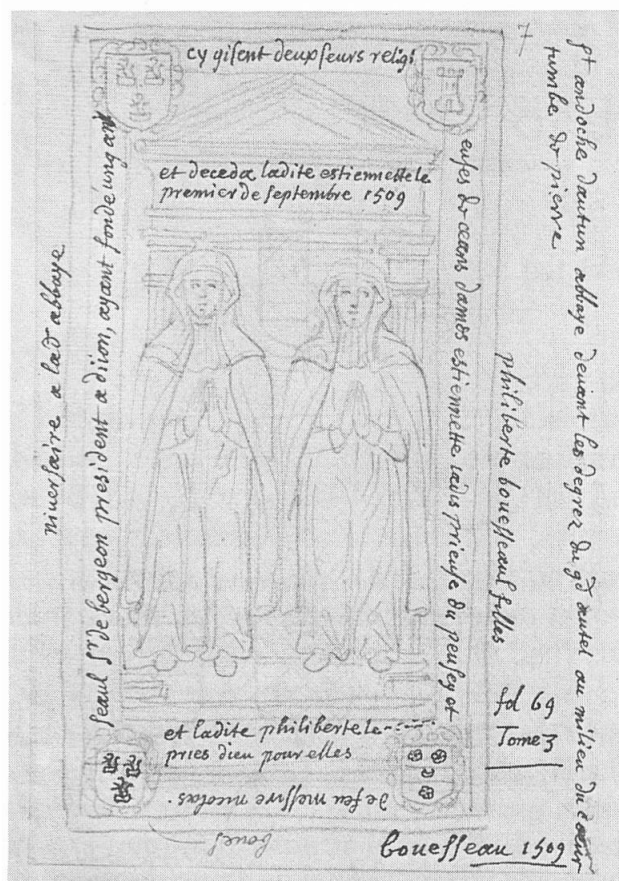 7
St andoche dautun abbaye devant les degrez du gd autel au milieu du cœur
tumbe de pierre
cy gisent deux seurs religi
euses de ceans dames estiennette iadis prieuse du peussey et
philiberte bouesseaul filles
de feu messire nicolas.
boues
seaul sr de bergeon president a diion, ayant fondé ung an
niversaire a lad abbaye
et deceda ladite estiennette le
premier de septembre 1509
et ladite philiberte le
pries dieu pour elles
fol 69
Tome 3
bouesseau 1509